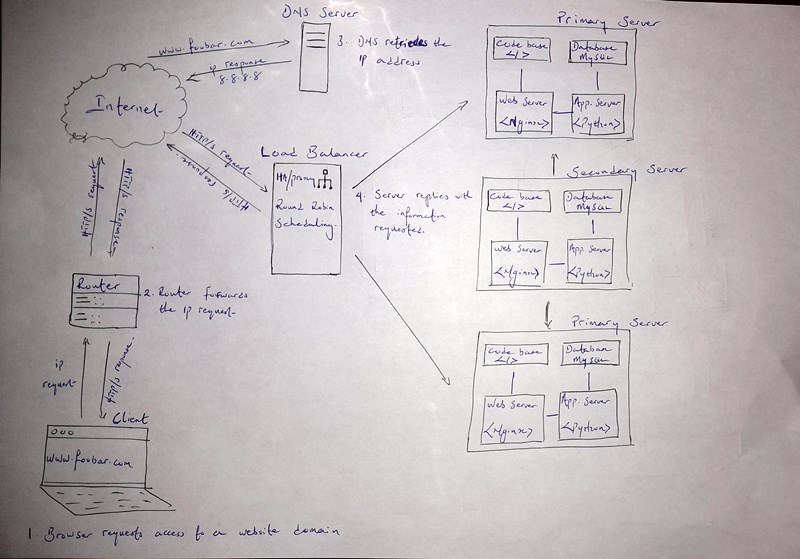 DNS Server
www.foobar.com
3. DNS retrieves the
ip address
ip response
8.8.8.8
Internet
Http/s request
Http/s response
Http/s request
Http/s response
Load Balancer
HA/proxy
Round Robin
Scheduling.
4. Server replies with
the information
requested.
Router
2. Router forwards
the ip request
ip
request
Http/s response
Client
www.foobar.com
1. Browser requests access to a website domain
Primary Server
Code base
</>
Database
MySQL
Web Server
<Nginx>
App. Server
<Python>
Secondary Server
Code base
</>
Database
MySQL
Web Server
<Nginx>
App. Server
<Python>
Primary Server
Code base
</>
Database
MySQL
Web Server
<Nginx>
App. Server
<Python>